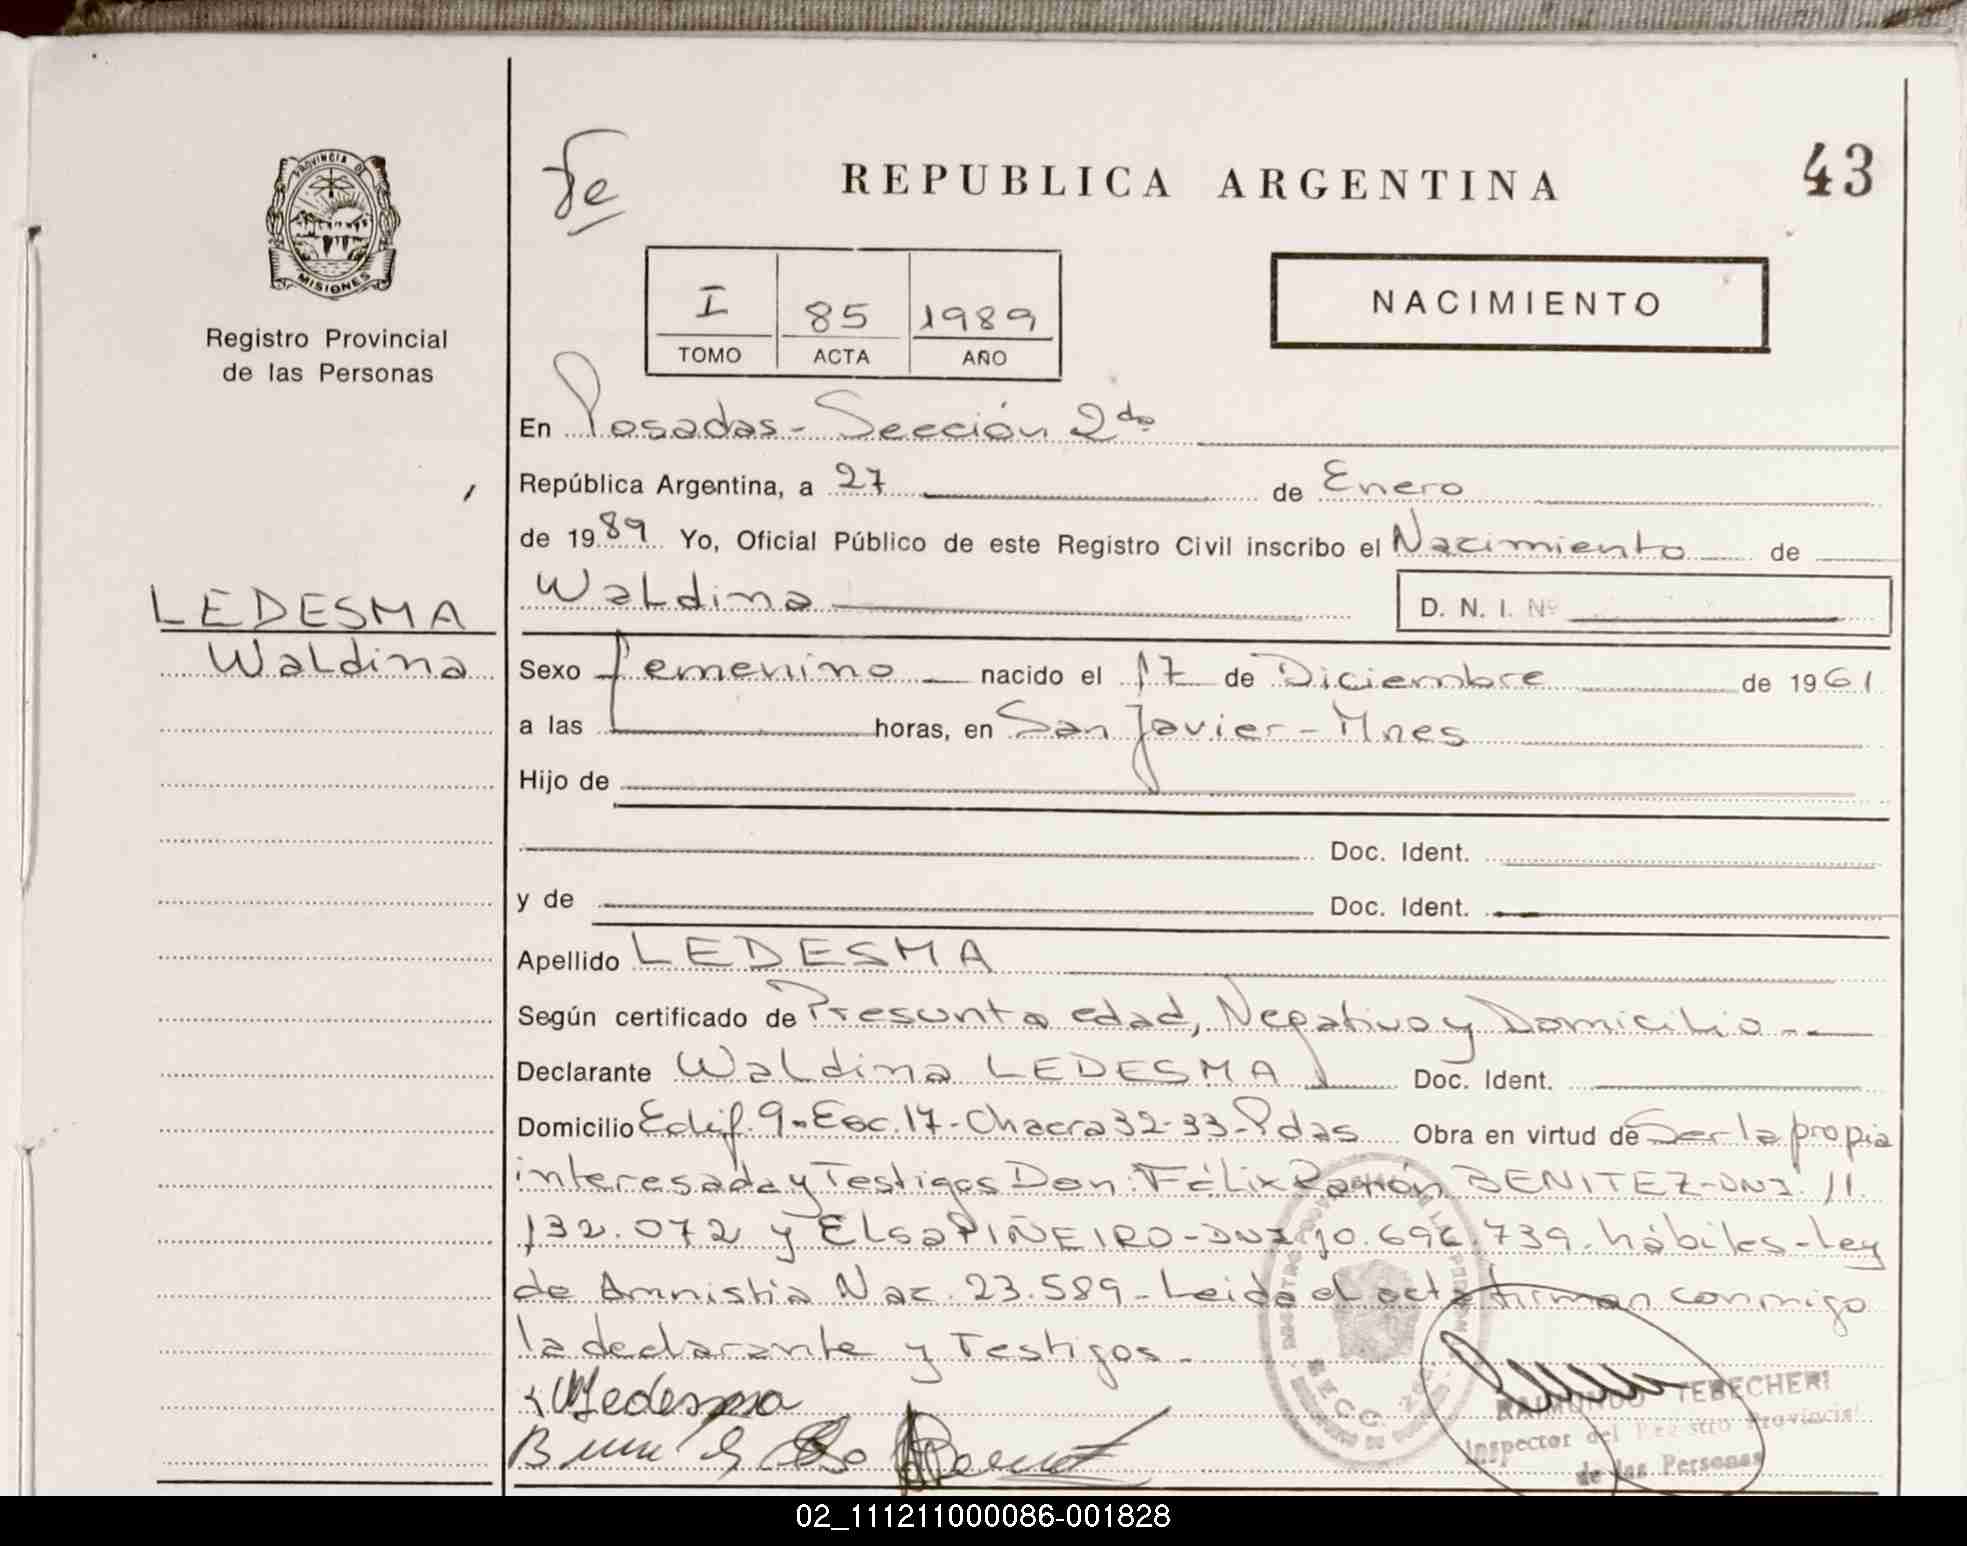 PROVINCIA D
MISIONES
Registro Provincial
de las Personas
LEDESMA
Waldina
Fe
REPUBLICA ARGENTINA
43
I 85 1989
TOMO ACTA AÑO
NACIMIENTO
En Posadas - Sección 2da
República Argentina, a 27 de Enero
de 1989 Yo, Oficial Público de este Registro Civil inscribo el Nacimiento de
Waldina D. N. I. Nº
Sexo femenino nacido el 17 de Diciembre de 1961
a las horas, en San Javier - Mnes
Hijo de
Doc. Ident.
y de Doc. Ident.
Apellido LEDESMA
Según certificado de Presunta edad, Negativo y Domicilio.-
Declarante Waldina LEDESMA Doc. Ident.
Domicilio Edif. 9 - Esc. 17 - Chacra 32-33 - Pdas Obra en virtud de Ser la propia
interesada y Testigos Don: Félix Ramón BENITEZ - DNI. 11.
132.072 y Elsa PIÑEIRO - DNI 10.696.739. hábiles - Ley
de Amnistia Nac. 23.589 - Leida el acta firman conmigo
la declarante y Testigos.-
WLedesma
RAIMUNDO TEBECHERI
Inspector del Registro Provincial
de las Personas
SECC. 2
02_111211000086-001828